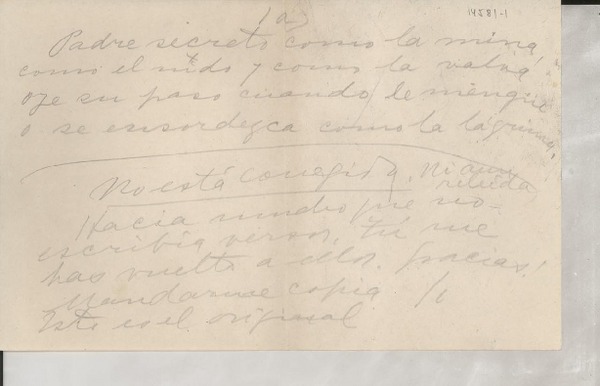 14581-1
Padre secreto como la mina
como el nido y como la valva
oye su paso cuando le mengüe
o se ensordezca como la lágrima.
No está corregida. Ni aun
releída
Hacía mucho que no
escribía versos, tú me
has vuelto a ellos. Gracias!
Mandarme copia.
Este es el original